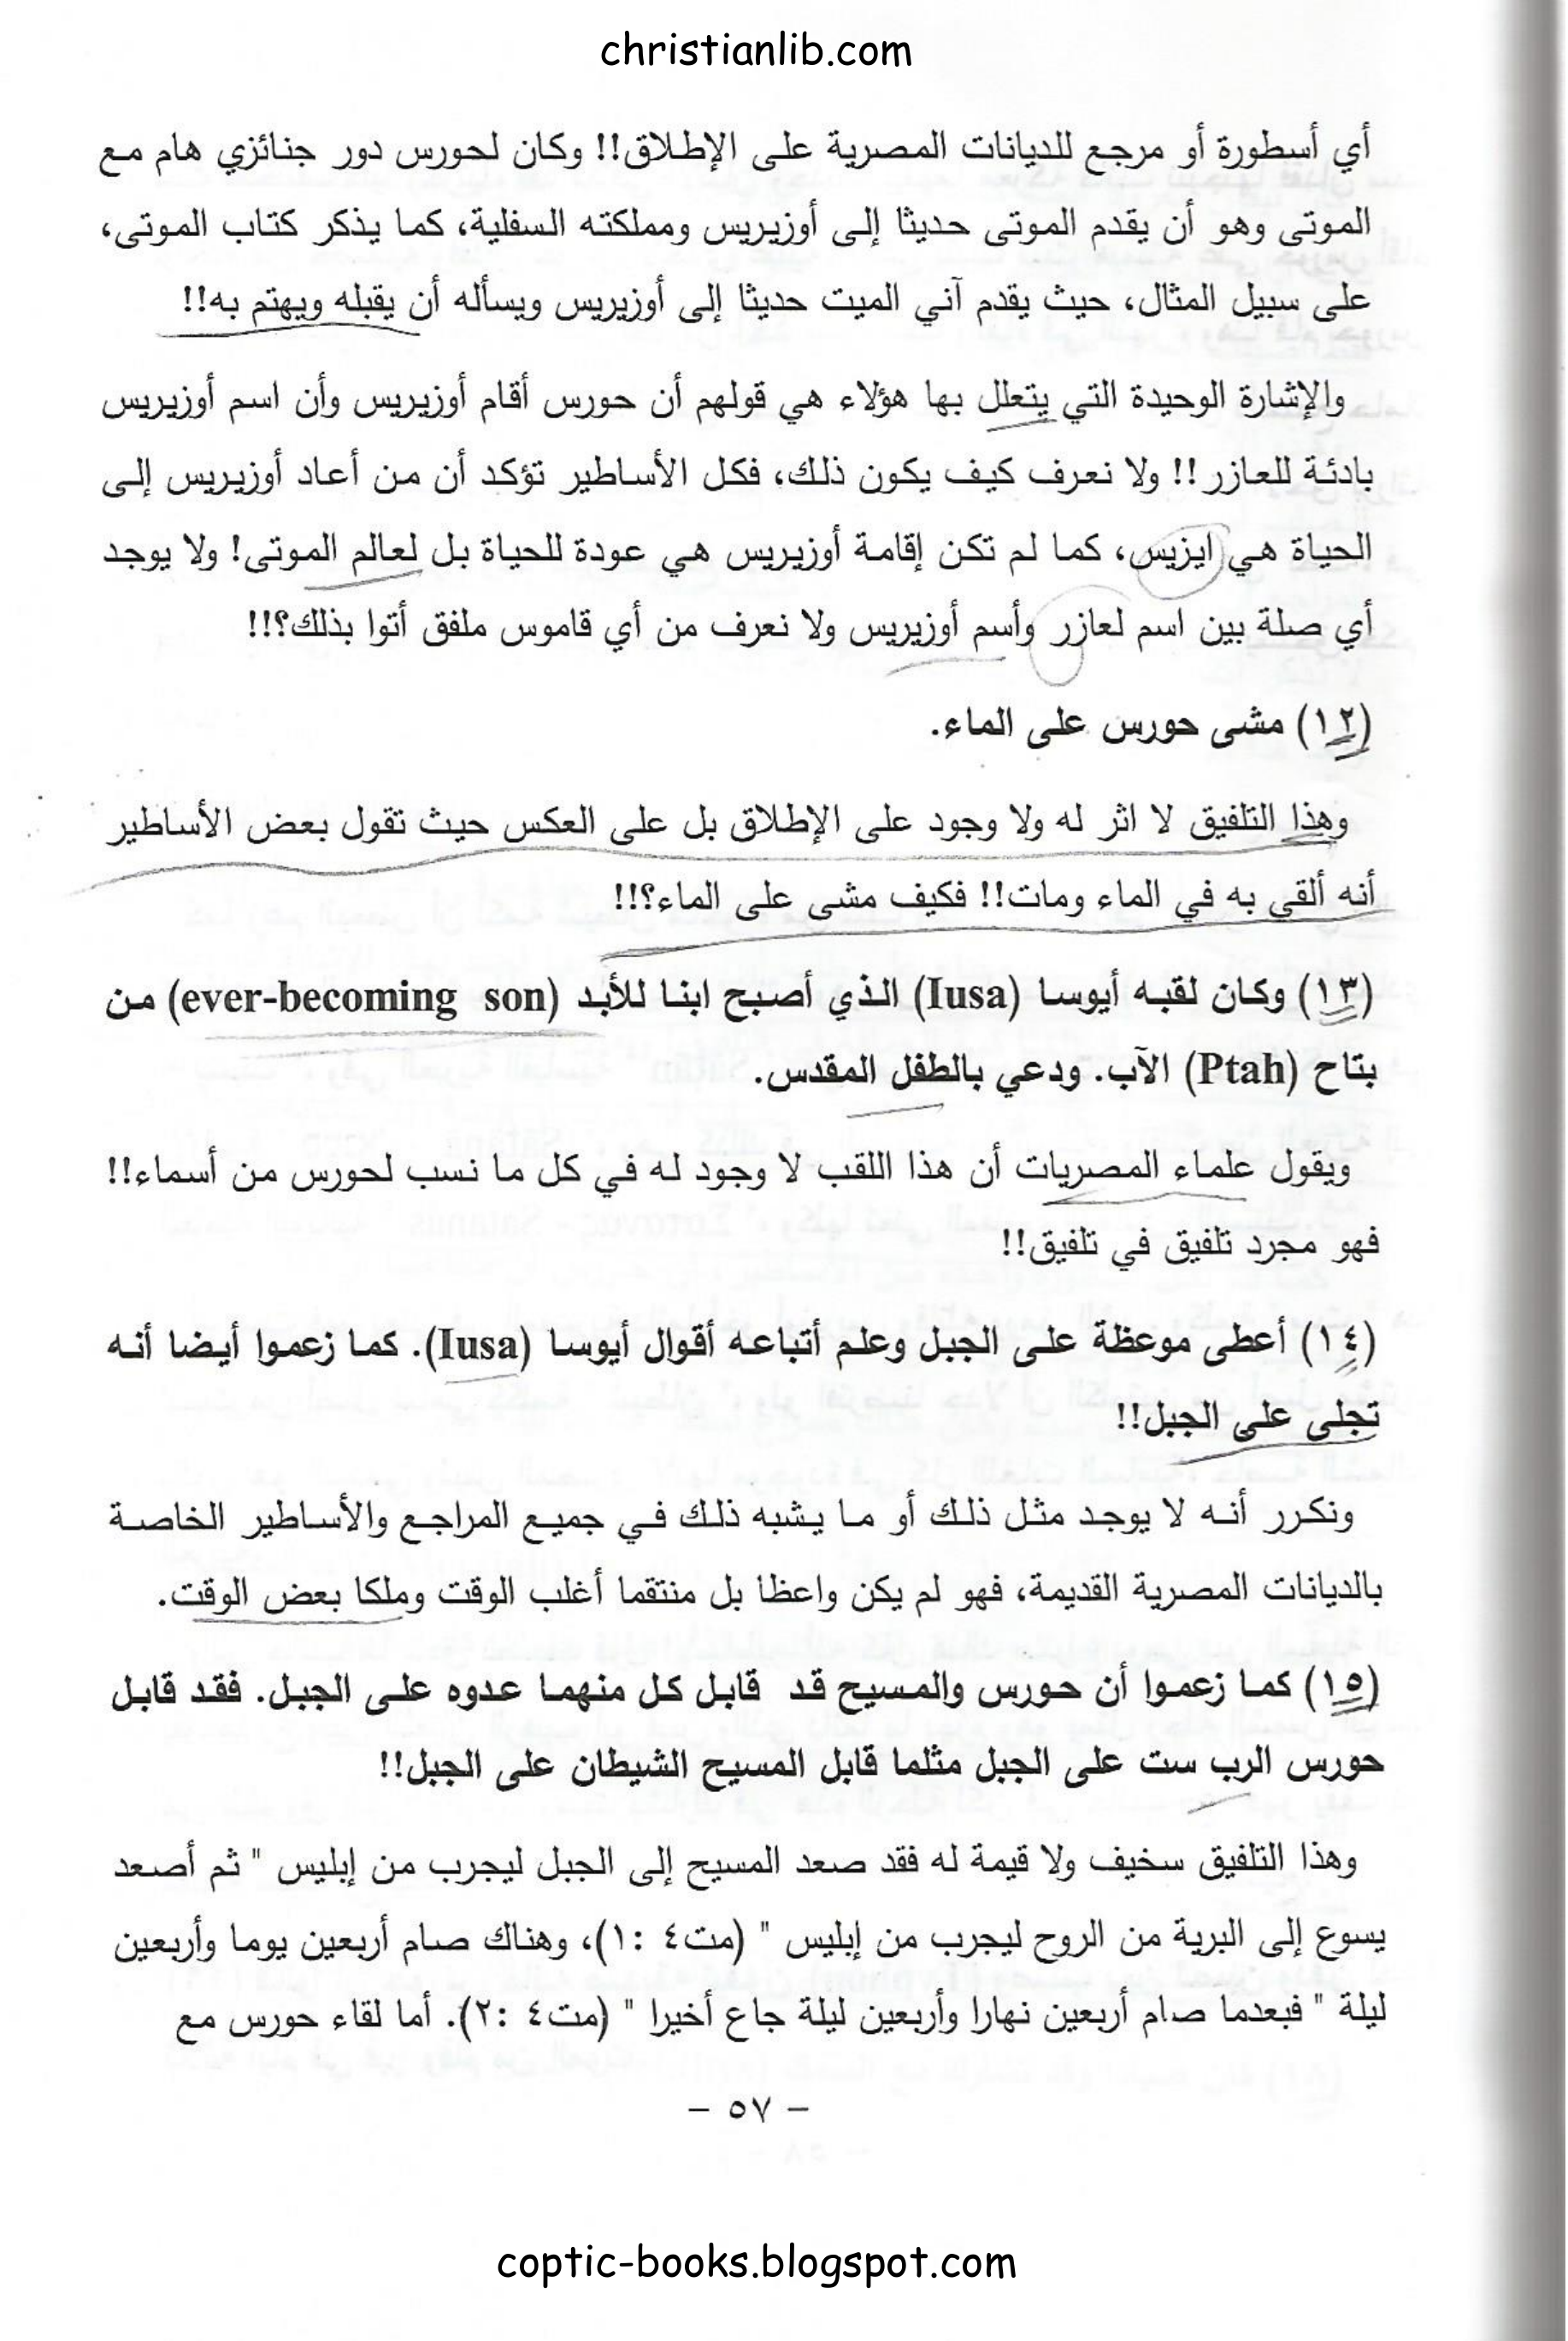 christianlib.com
أي أسطورة أو مرجع للديانات المصرية على الإطلاق!! وكان لحورس دور جنائزي هام مع
الموتى وهو أن يقدم الموتى حديثا إلى أوزيريس ومملكته السفلية، كما يذكر كتاب الموتى،
على سبيل المثال، حيث يقدم آني الميت حديثا إلى أوزيريس ويسأله أن يقبله ويهتم به!!
والإشارة الوحيدة التي يتعلل بها هؤلاء هي قولهم أن حورس أقام أوزيريس وأن اسم أوزيريس
بادئة للعازر!! ولا نعرف كيف يكون ذلك، فكل الأساطير تؤكد أن من أعاد أوزيريس إلى
الحياة هي ايزيس، كما لم تكن إقامة أوزيريس هي عودة للحياة بل لعالم الموتى! ولا يوجد
أي صلة بين اسم لعازر وأسم أوزيريس ولا نعرف من أي قاموس ملفق أتوا بذلك؟!!
(١٢) مشى حورس على الماء.
وهذا التلفيق لا اثر له ولا وجود على الإطلاق بل على العكس حيث تقول بعض الأساطير
أنه ألقي به في الماء ومات!! فكيف مشى على الماء؟!!
(١٣) وكان لقبه أيوسا (Iusa) الذي أصبح ابنا للأبد (ever-becoming son) من
بتاح (Ptah) الآب. ودعي بالطفل المقدس.
ويقول علماء المصريات أن هذا اللقب لا وجود له في كل ما نسب لحورس من أسماء!!
فهو مجرد تلفيق في تلفيق!!
(١٤) أعطى موعظة على الجبل وعلم أتباعه أقوال أيوسا (Iusa). كما زعموا أيضا أنه
تجلى على الجبل!!
ونكرر أنه لا يوجد مثل ذلك أو ما يشبه ذلك في جميع المراجع والأساطير الخاصة
بالديانات المصرية القديمة، فهو لم يكن واعظا بل منتقما أغلب الوقت وملكا بعض الوقت.
(١٥) كما زعموا أن حورس والمسيح قد قابل كل منهما عدوه على الجبل. فقد قابل
حورس الرب ست على الجبل مثلما قابل المسيح الشيطان على الجبل!!
وهذا التلفيق سخيف ولا قيمة له فقد صعد المسيح إلى الجبل ليجرب من إبليس " ثم أصعد
يسوع إلى البرية من الروح ليجرب من إبليس " (مت٤ :١)، وهناك صام أربعين يوما وأربعين
ليلة " فبعدما صام أربعين نهارا وأربعين ليلة جاع أخيرا " (مت٤ :٢). أما لقاء حورس مع
- ٥٧ -
coptic-books.blogspot.com